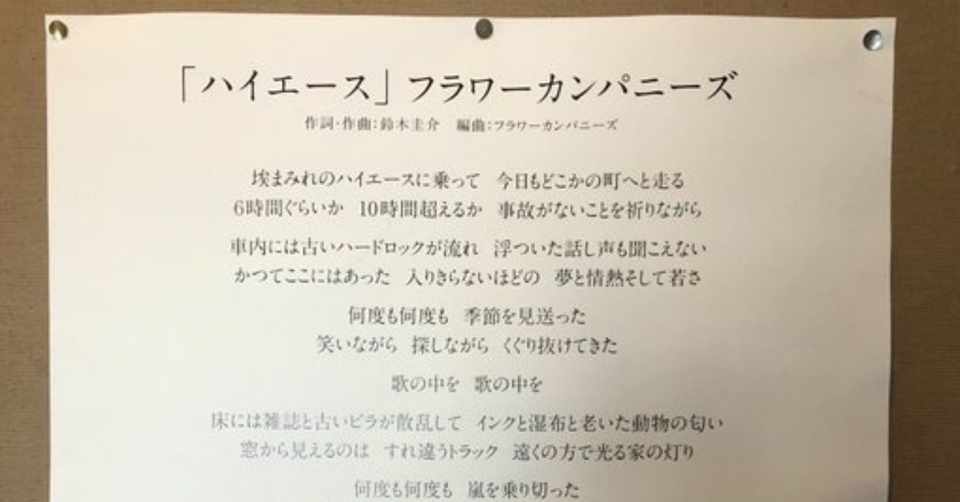 「ハイエース」フラワーカンパニーズ
作詞・作曲:鈴木圭介　編曲:フラワーカンパニーズ
埃まみれのハイエースに乗って　今日もどこかの町へと走る
6時間ぐらいか　10時間超えるか　事故がないことを祈りながら
車内には古いハードロックが流れ　浮ついた話し声も聞こえない
かつてここにはあった　入りきらないほどの　夢と情熱そして若さ
何度も何度も　季節を見送った
笑いながら　探しながら　くぐり抜けてきた
歌の中を　歌の中を
床には雑誌と古いビラが散乱して　インクと湿布と老いた動物の匂い
窓から見えるのは　すれ違うトラック　遠くの方で光る家の灯り
何度も何度も　嵐を乗り切った